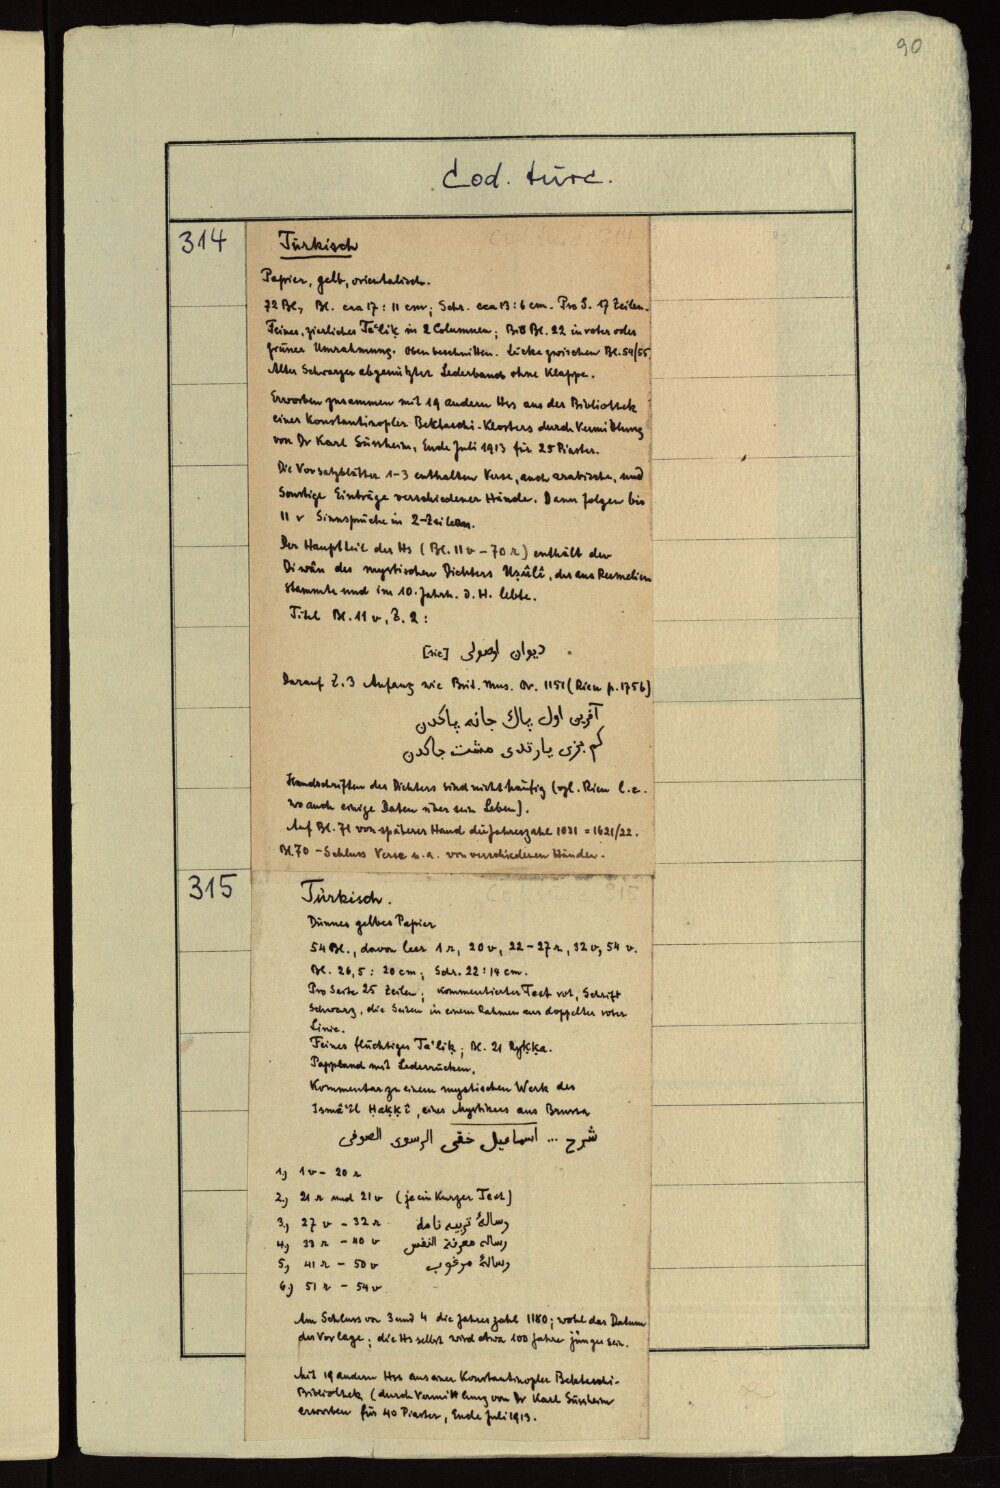 90
Cod. turc.
314
Türkisch
Papier, gelb, orientalisch.
72 Bl., Bl. cca 17 : 11 cm; Schr. cca 13 : 6 cm. Pro S. 17 Zeilen.
Feines, zierliches Ta'lîḳ in 2 Columnen; Bis Bl. 22 in roter oder
grüner Umrahmung. Oben beschnitten. Lücke zwischen Bl. 54/55.
Alter Schwarzer abgenützter Lederband ohne Klappe.
Erworben zusammen mit 19 andern Hss aus der Bibliothek
eines Konstantinopler Bektaschi-Klosters durch Vermittlung
von Dr Karl Süssheim, Ende Juli 1913 für 25 Piaster.
Die Vorsatzblätter 1-3 enthalten Verse, auch arabische, und
Sonstige Einträge verschiedener Hände. Dann folgen bis
11 v Sinnsprüche in 2-Zeilern.
Der Hauptteil der Hs (Bl. 11 v - 70 r) enthält den
Dîwân des mystischen Dichters Uṣûlî, der aus Rumelien
stammte und im 10. Jahrh. d. H. lebte.
Titel Bl. 11 v, Z. 2 :
ديوان اوصولى [sic]
Darauf Z. 3 Anfang wie Brit. Mus. Or. 1151 (Rieu p. 175b)
آفرين اول پاك جانه پاكدن
كم بزى يارتدى مشت خاكدن
Handschriften des Dichters sind nicht häufig (vgl. Rieu l.c.
wo auch einige Daten über sein Leben).
Auf Bl. 71 von späterer Hand die Jahreszahl 1031 = 1621/22.
Bl. 70 - Schluss Verse u.a. von verschiedenen Händen.
315
Türkisch.
Dünnes gelbes Papier
54 Bl., davon leer 1 r, 20 v, 22 - 27 r, 32 v, 54 v.
Bl. 26,5 : 20 cm; Schr. 22 : 14 cm.
Pro Seite 25 Zeilen; kommentierter Text rot, Schrift
Schwarz, die Seiten in einem Rahmen aus doppelter roter
Linie.
Feines flüchtiges Ta'lîḳ; Bl. 21 Ryḳḳa.
Pappband mit Lederrücken.
Kommentar zu einem mystischen Werk des
Ismâ'îl Ḥaḳḳî, eines Mystikers aus Brussa
شرح ... اسماعيل حقى البرسوى الصوفى
1.) 1 v - 20 r
2.) 21 r und 21 v (je ein kurzer Text)
3.) 27 v - 32 r رسالۀ تربيه نامه
4.) 33 r - 40 v رساله معرفة النفس
5.) 41 r - 50 v رسالۀ مرغوب
6.) 51 r - 54 v
Am Schluss von 3 und 4 die Jahreszahl 1180; wohl das Datum
der Vorlage; die Hs selbst wird etwa 100 Jahre jünger sein.
Mit 19 andern Hss aus einer Konstantinopler Bektaschi-
Bibliothek (durch Vermittlung von Dr Karl Süssheim
erworben für 40 Piaster, Ende Juli 1913.